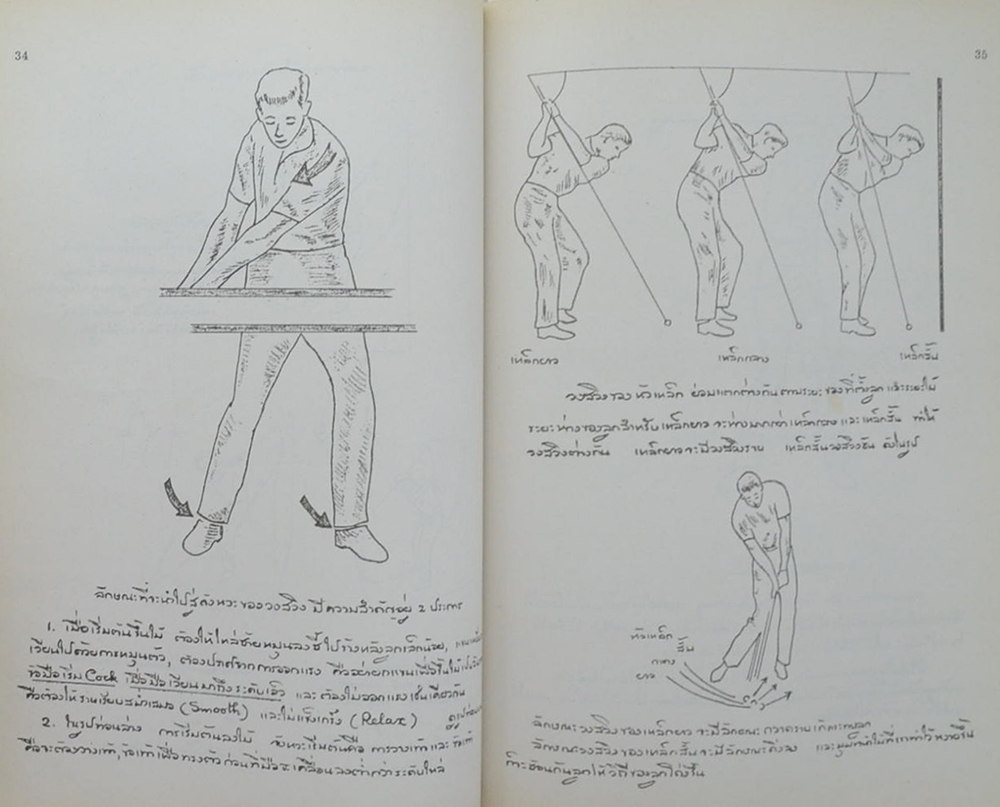 34
ลักษณะที่จะนำไปสู่จังหวะของวงสวิง มีความสำคัญอยู่ 2 ประการ
1. เมื่อเริ่มต้นขึ้นไม้ ต้องให้ไหล่ซ้ายหมุนลงชี้ไปข้างหลังลูกเล็กน้อย,
เวียนไปด้วยการหมุนตัว, ต้องปราศจากการออกแรง คืออย่ายกแขนเพื่อขึ้นไม้
ข้อมือเริ่ม Cock เมื่อมือเวียนมาถึงระดับเอว และ ต้องไม่ออกแรงเช่นเดียวกัน
คือต้องให้ราบเรียบสม่ำเสมอ (Smooth) และไม่แข็งเกร็ง (Relax)
2. ในรูปท่อนล่าง การเริ่มต้นลงไม้ จังหวะเริ่มต้นคือ การวางเท้า และ ข้อเท้า
คือจะต้องวางเท้า, ข้อเท้าเพื่อทรงตัว ก่อนที่มือจะเคลื่อนลงต่ำกว่าระดับไหล่
35
เหล็กยาว
เหล็กกลาง
เหล็กสั้น
วงสวิงของ หัวเหล็ก ย่อมแตกต่างกัน ตามระยะ ของที่ตั้งลูก และระยะไม้
ระยะห่างของลูกสำหรับเหล็กยาว จะห่างมากกว่าเหล็กกลาง และ เหล็กสั้น ทำให้
วงสวิงต่างกัน เหล็กยาวจะมีวงสวิงราบ เหล็กสั้นวงสวิงชัน ดังในรูป
หัวเหล็ก
สั้น
กลาง
ยาว
ลักษณะวงสวิงของเหล็กยาว จะมีลักษณะ กวาดราบ
ลักษณะวงสวิงของเหล็กสั้นจะมีลักษณะดิ่งลง และมุม
ก็จะช้อนก้นลูกให้วิถีของลูกโด่งขึ้น